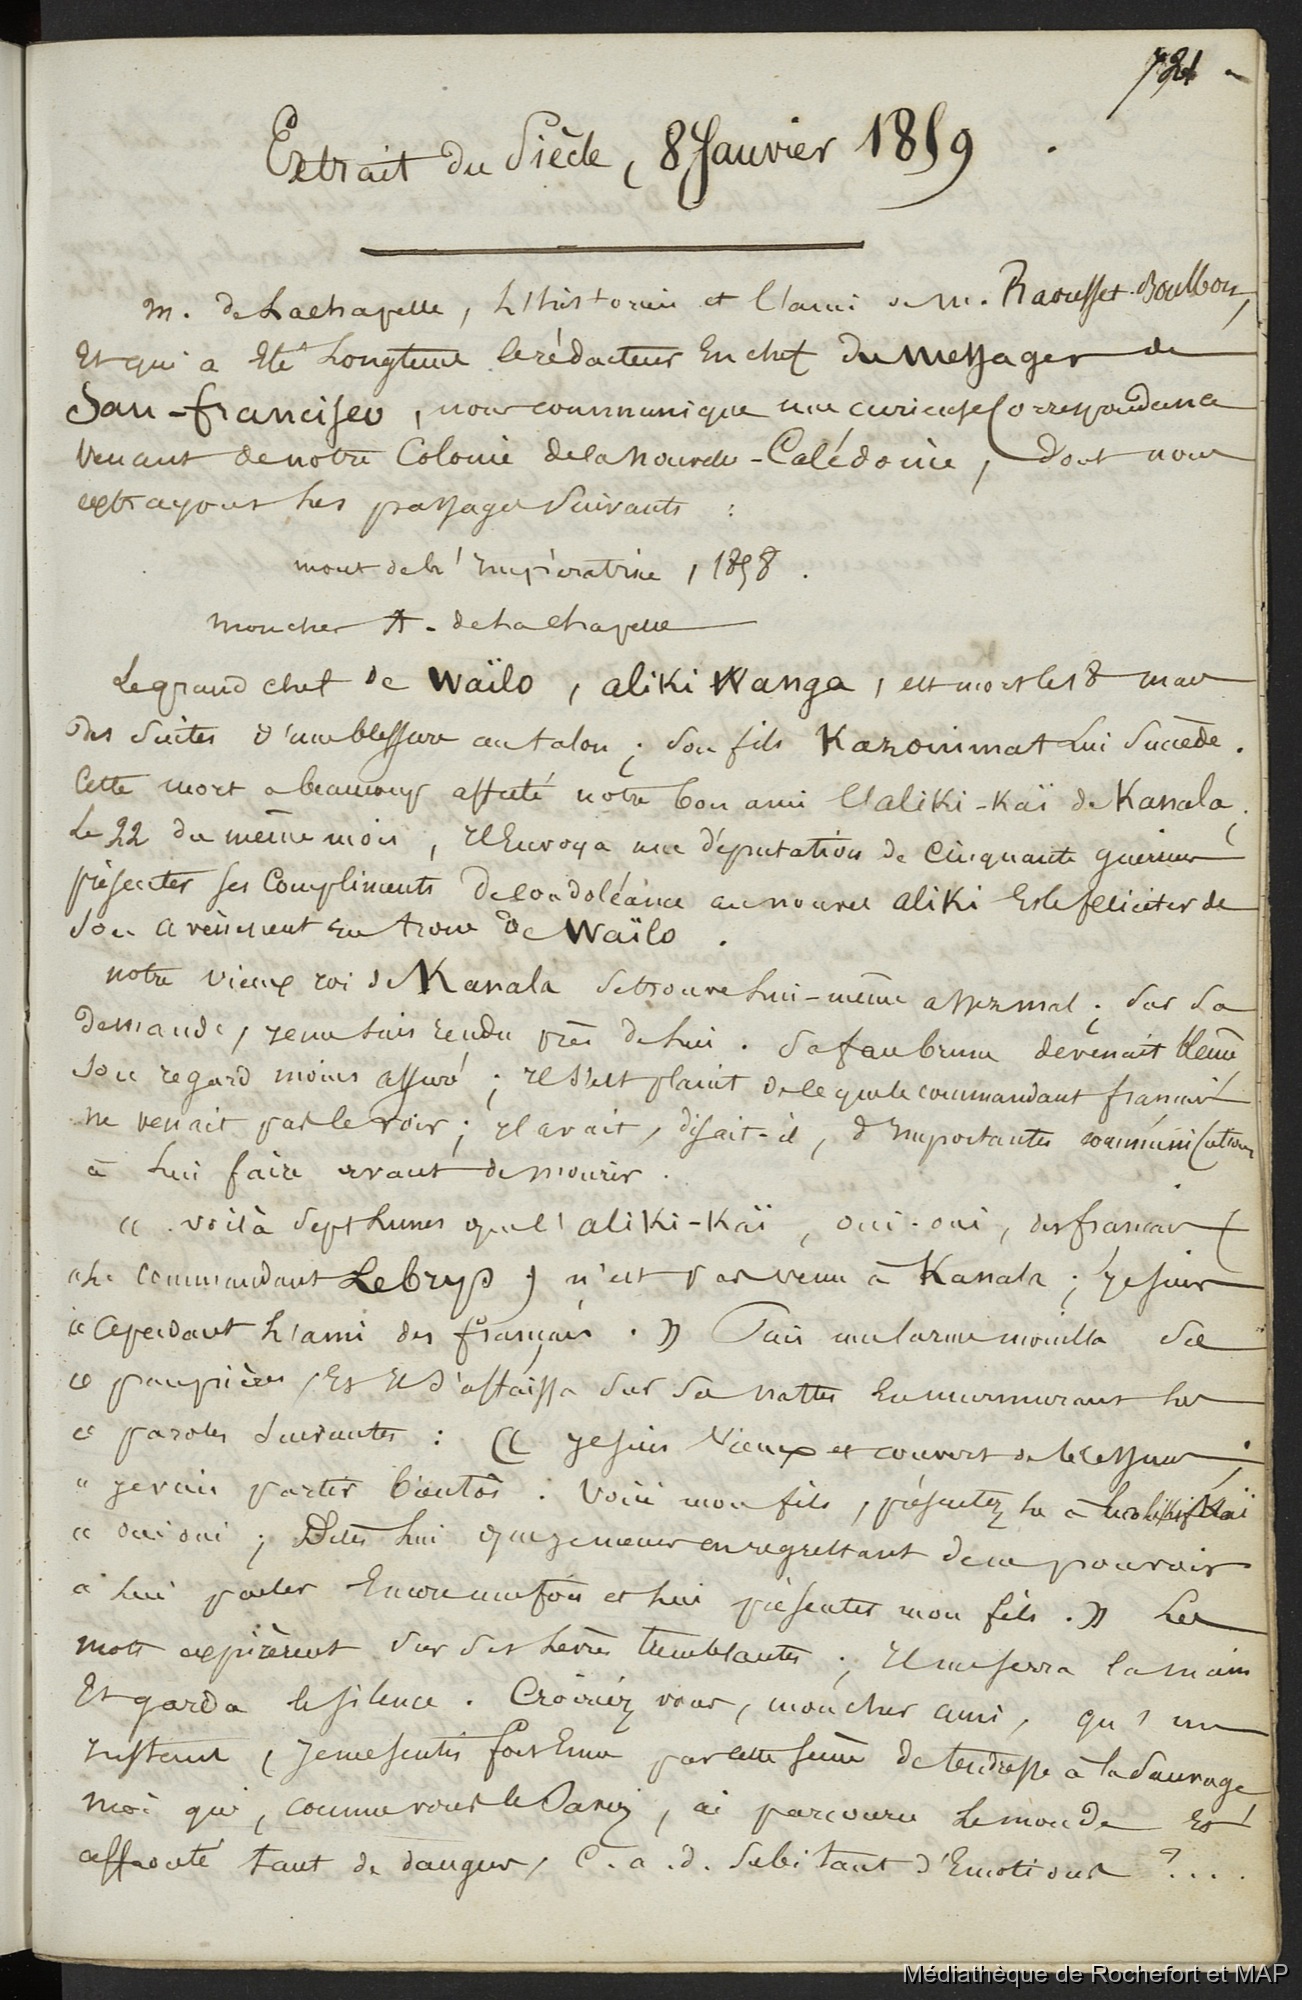 721
Extrait du Siècle, 8 Janvier 1859.
M. de Lachapelle, L'historien et l'ami de M. Raousset-Boulbon,
Et qui a Eté Longtems le rédacteur En chef du Messager de
San-francisco, nous communique une curieuse Correspondance
Venant de notre Colonie de la Nouvelle-Calédonie, dont nous
extrayons Les passages Suivants :
mont de L'Impératrice, 1858.
mon cher A. de Lachapelle
Le grand chef de Waïlo, aliki Wanga, est mort le 18 mai
des Suites d'une blessure au talon ; Son fils Kazouimat Lui Succède.
Cette mort a beaucoup affecté notre bon ami l'aliki-Kaï de Kanala ;
Le 22 du même mois, Il Envoya une députation de cinquante guerriers
présenter ses Compliments de condoléance au nouvel aliki Et le féliciter de
Son avènement au trone de Waïlo.
notre vieux roi de Kanala se trouve Lui-même assez mal ; Sur Sa
demande, je me suis rendu près de Lui. Sa face brune devenait blême
Son regard moins assuré ; Il s'est plaint de ce que le commandant français
ne venait pas le voir ; Il avait, disait-il, d'Importantes communications
à Lui faire avant de mourir.
« voilà Sept Lunes que l'aliki-Kaï, oui-oui, des français (
« Le commandant Lebrys) n'est pas venu à Kanala ; je suis
« Cependant L'ami des français. » Puis une larme mouilla Ses
« paupières, Et Il s'affaissa Sur Sa natte En murmurant Les
« paroles Suivantes : « je suis Vieux et couvert de blessures ;
« je vais partir bientôt. Voici mon fils, présentez Le à l'aliki-Kaï
« oui oui ; Dites Lui que je meurs en regrettant de ne pouvoir
« Lui parler Encore une fois et Lui présenter mon fils. » Les
mots expirèrent Sur Ses Lèvres tremblantes ; Il me serra la main
Et garda le silence. Croiriez vous, mon cher ami, qu'un
Instant, je me sentis fort Emu par cette scène de tendresse à la Sauvage
moi qui, comme vous le Savez, ai parcouru Le monde Et
affronté tant de dangers, C.a.d. Subi tant d'Emotions ?...
Médiathèque de Rochefort et MAP